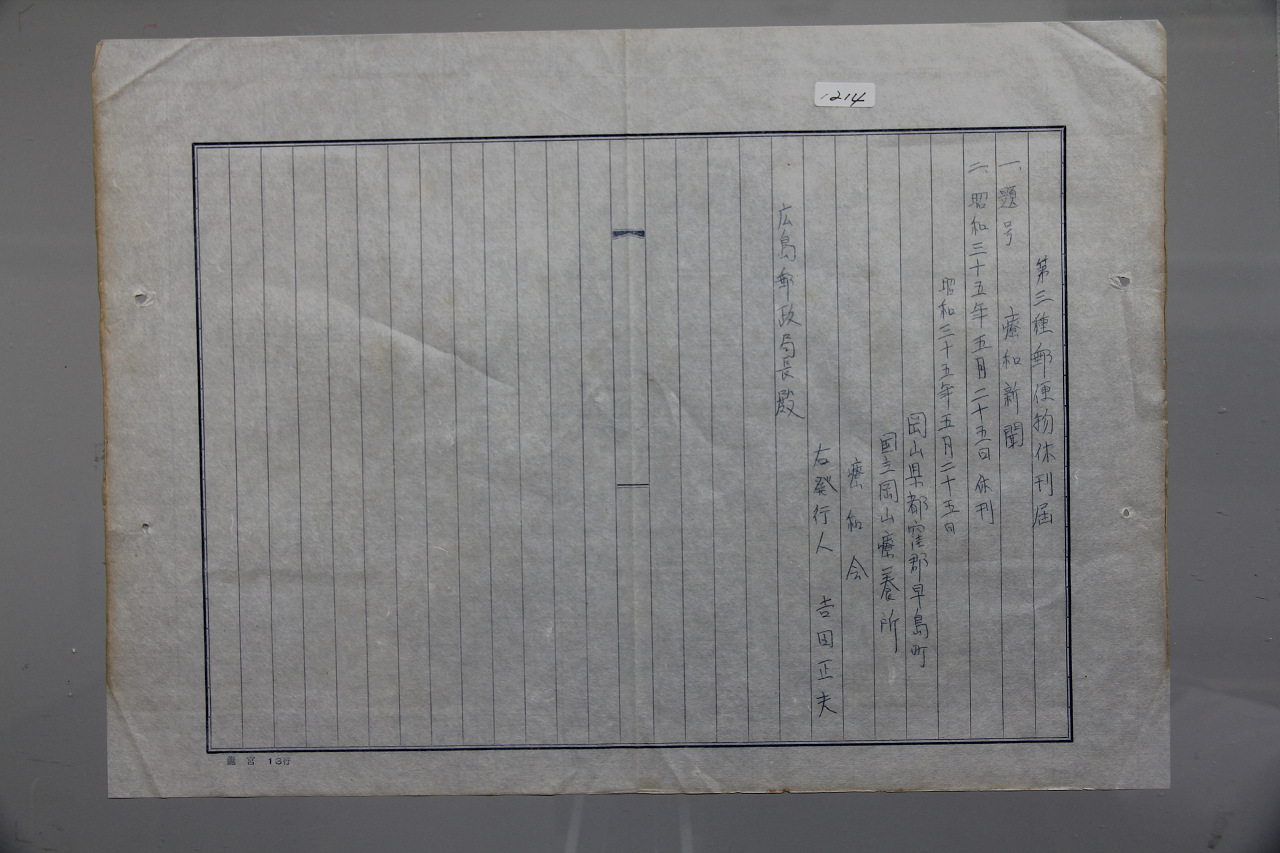 1214
第三種郵便物休刊届
一、題号　療和新聞
二、昭和三十五年五月二十五日休刊
昭和三十五年五月二十五日
岡山県都窪郡早島町
国立岡山療養所
療和会
右発行人　吉田正夫
広島郵政局長殿
龍宮 13行